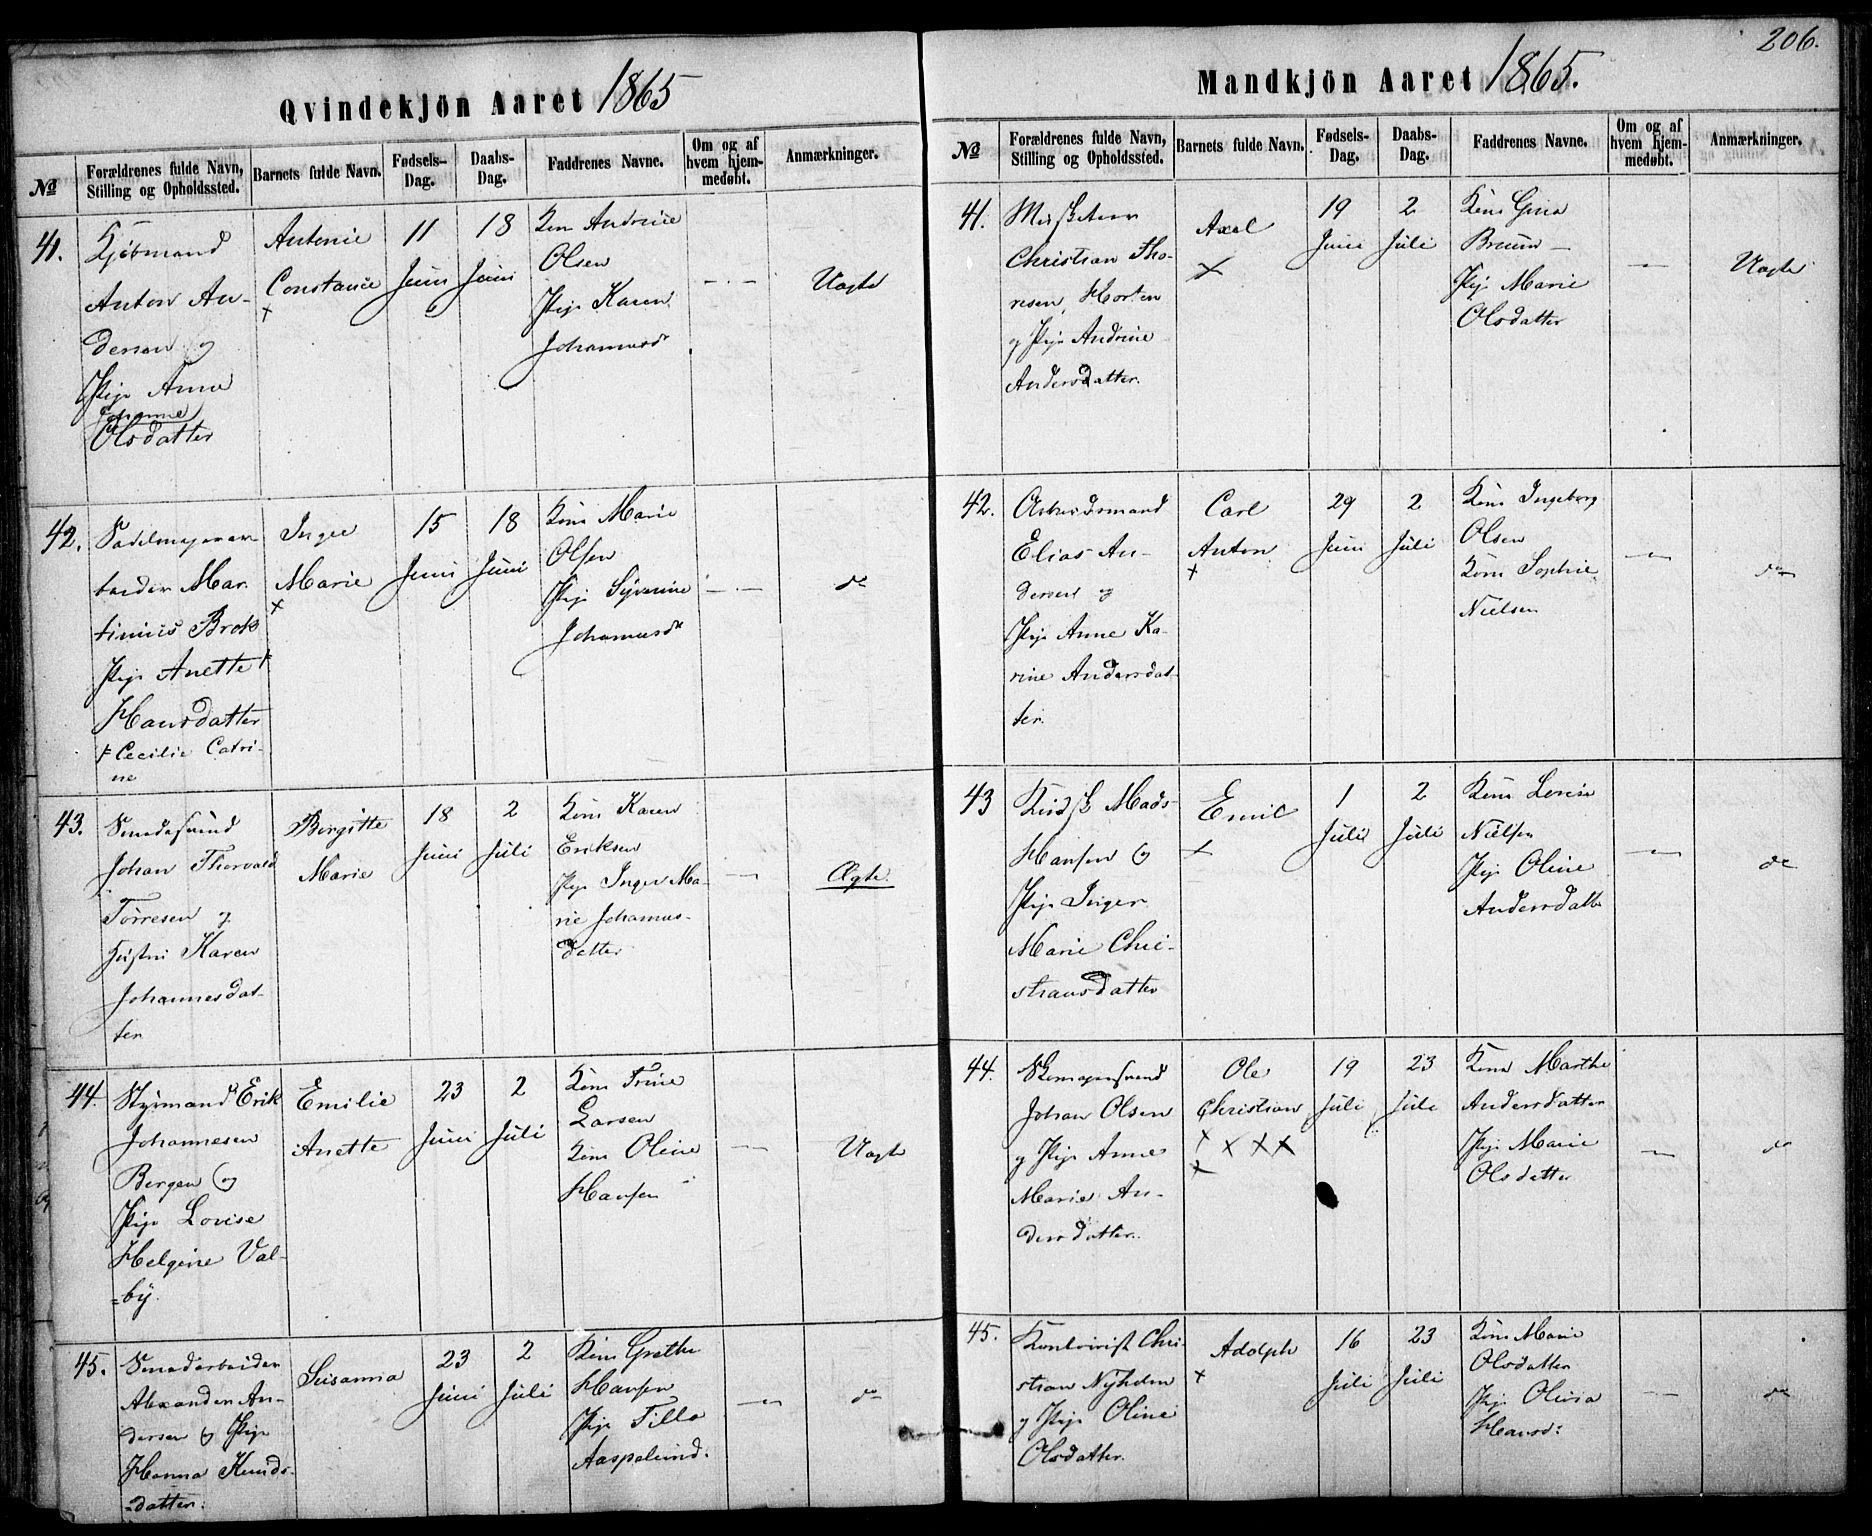 206.
Qvindekjön Aaret 1865
No
Forældrenes fulde Navn, Stilling og Opholdssted.
Barnets fulde Navn.
Fødsels-Dag.
Daabs-Dag.
Faddrenes Navne.
Om og af hvem hjemmedøbt.
Anmærkninger.
41.
Kjöbmand
Anton An-
dersen og
Pige Anne
Johanne
Olsdatter
Antonie
Constance
11
Juni
18
Juni
Kone Andrine
Olsen
Pige Karen
Johannesdr
Uægte
42.
Sadelmagerar-
beider Mar-
tinius Brok
Pige Anette
Hansdatter
Cecilie Catri-
ne
Inger
Marie
15
Juni
18
Juni
Kone Marie
Olsen
Pige Syverine
Johannesdr
do
43.
Smedesvend
Johan Thorvald
Torresen og
Hustru Karen
Johannesdat-
ter
Birgitte
Marie
18
Juni
2
Juli
Kone Karen
Eriksen
Pige Inger Ma-
rie Johannes-
datter
Ægte.
44.
Styrmand Erik
Johannesen
Bergen og
Pige Lovise
Helgine Val-
=by.
Emilie
Anette
23
Juni
2
Juli
Kone Trine
Larsen
Kone Oline
Hansen
Uægte
45.
Smedarbeider
Alexander An-
dersen og Pige
Hanna Knuds-
=datter.
Susanna
23
Juni
2
Juli
Kone Grethe
Hansen
Pige Tilla
Aaspelund.
do
Mandkjön Aaret 1865.
No
Forældrenes fulde Navn, Stilling og Opholdssted.
Barnets fulde Navn.
Fødsels-Dag.
Daabs-Dag.
Faddrenes Navne.
Om og af hvem hjemmedøbt.
Anmærkninger.
41.
Christian Tho-
resen, Horten
og Pige Andrine
Andersdatter.
Axel
19
Juni
2
Juli
Kone Gina
Bruun
Pige Marie
Olsdatter
Uægte
42.
Arbeidsmand
Elias An-
dersen og
Pige Anne Ka-
rine Andersdat-
ter.
Carl
Anton
29
Juni
2
Juli
Kone Ingeborg
Olsen
Kone Sophie
Nielsen
do
43
Kudsk Mads
Hansen og
Pige Inger
Marie Chri-
stiansdatter
Emil
1
Juli
2
Juli
Kone Lovise
Nielsen
Pige Oline
Andersdatter
do
44.
Skomagersvend
Johan Olsen
og Pige Anne
Marie An-
dersdatter.
Ole
Christian
19
Juli
23
Juli
Kone Marthe
Andersdatter
Pige Marie
Olsdatter
do
45.
Kontorist Chri-
stian Nyholm
og Pige Oline
Olsdatter.
Adolph
16
Juli
23
Juli
Kone Marie
Olsdatter
Pige Olivia
Hansd:
do